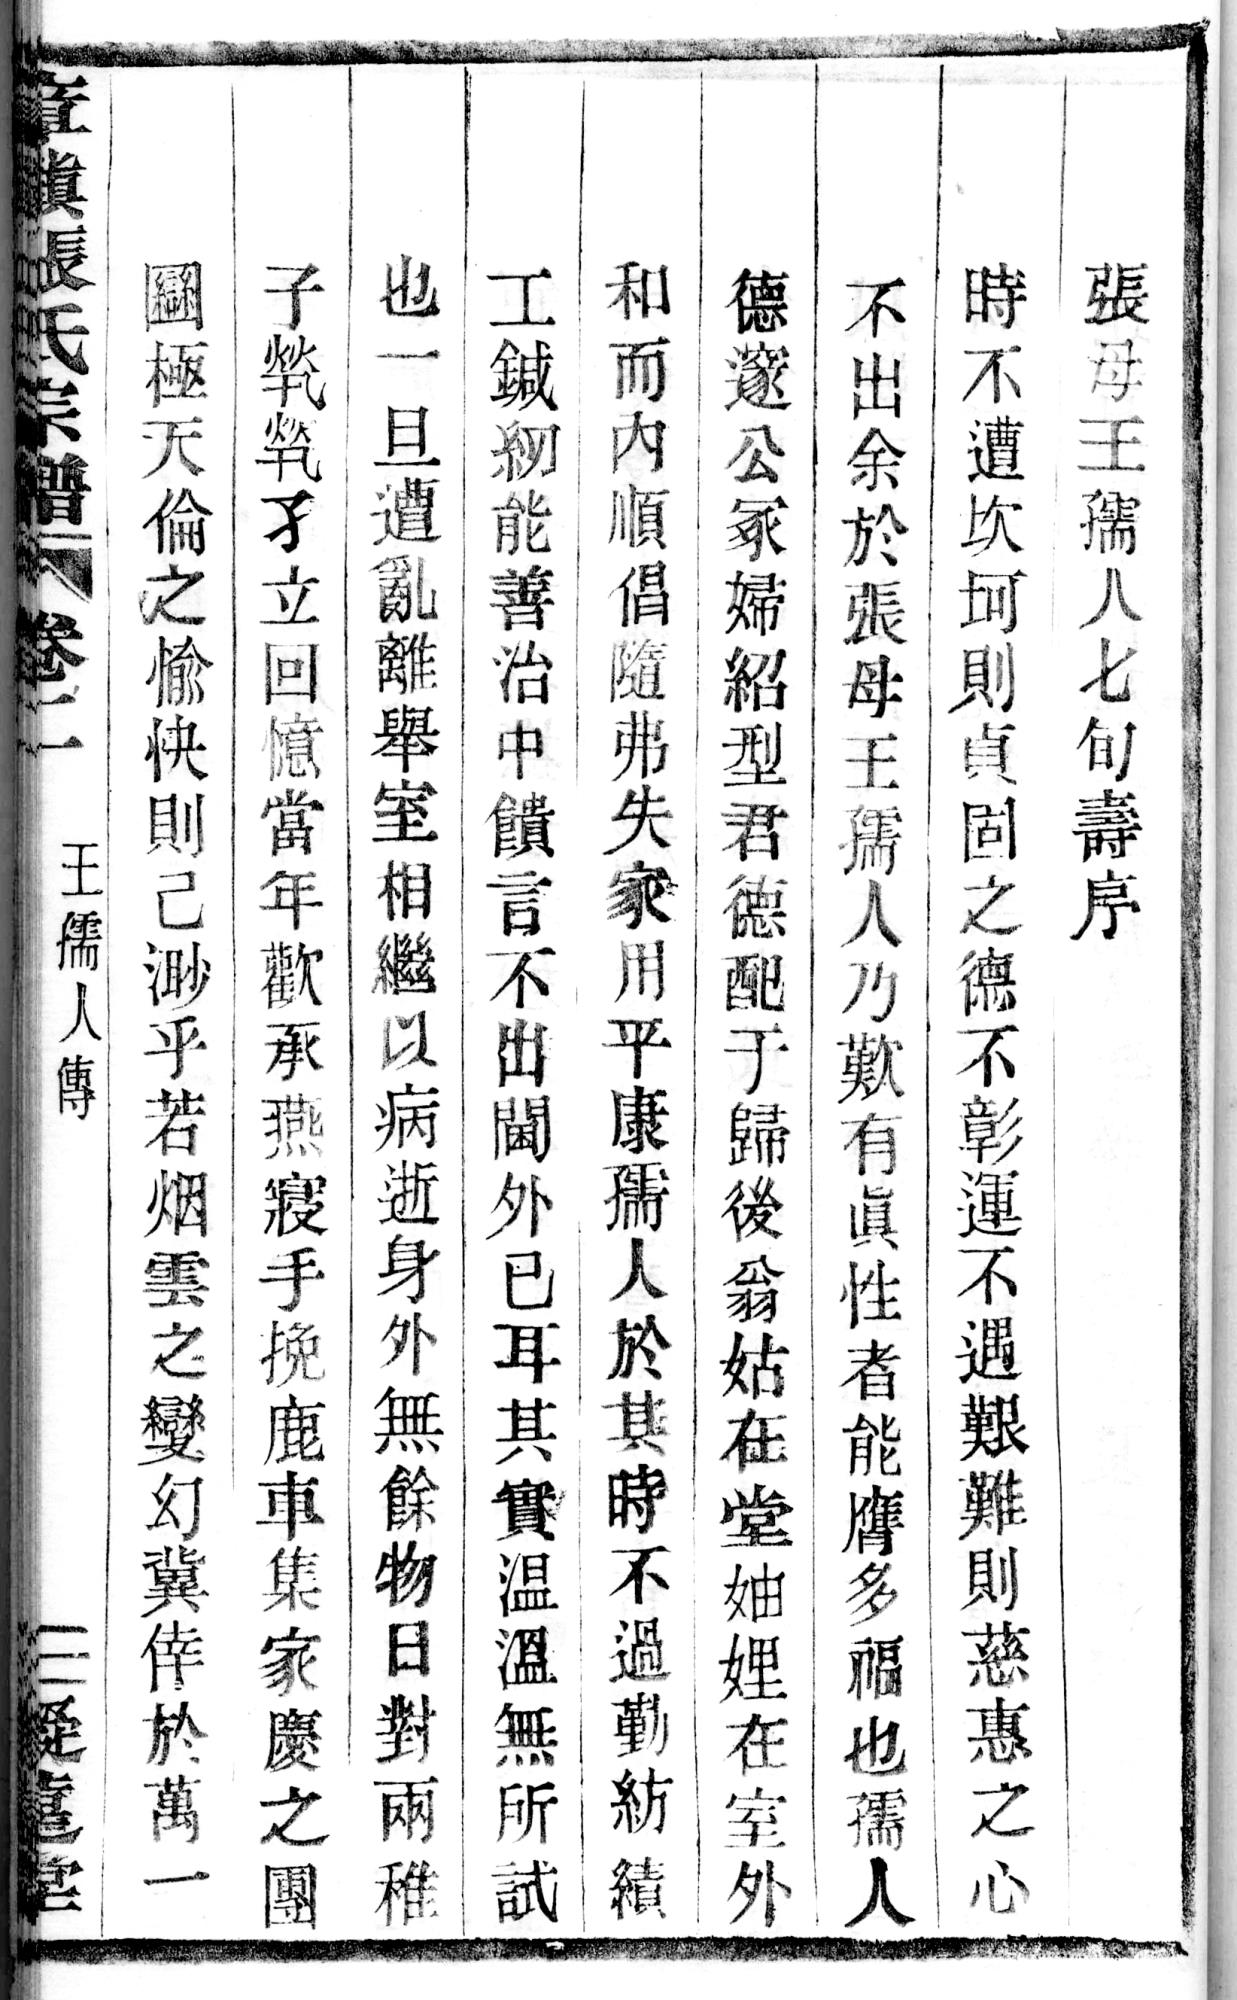 張母王孺人七旬壽序
時不遭坎坷則貞固之德不彰運不遇艱難則慈惠之心
不出余於張母王孺人乃歎有眞性者能膺多福也孺人
德邃公冢婦紹型君德配于歸後翁姑在堂妯娌在室外
和而內順倡隨弗失家用平康孺人於其時不過勤紡績
工鍼紉能善治中饋言不出閫外已耳其實温溫無所試
也一旦遭亂離舉室相繼以病逝身外無餘物日對兩稚
子煢煢孑立回憶當年歡承燕寢手挽鹿車集家慶之團
圞極天倫之愉快則已渺乎若烟雲之變幻冀倖於萬一
章鎮張氏宗譜 卷二
王孺人傳
三